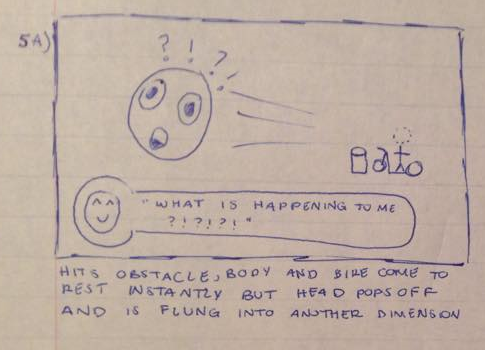 5A)
? ! ? !
"WHAT IS HAPPENING TO ME
?!?!?!"
HITS OBSTACLE, BODY AND BIKE COME TO
REST INSTANTLY BUT HEAD POPS OFF
AND IS FLUNG INTO ANOTHER DIMENSION